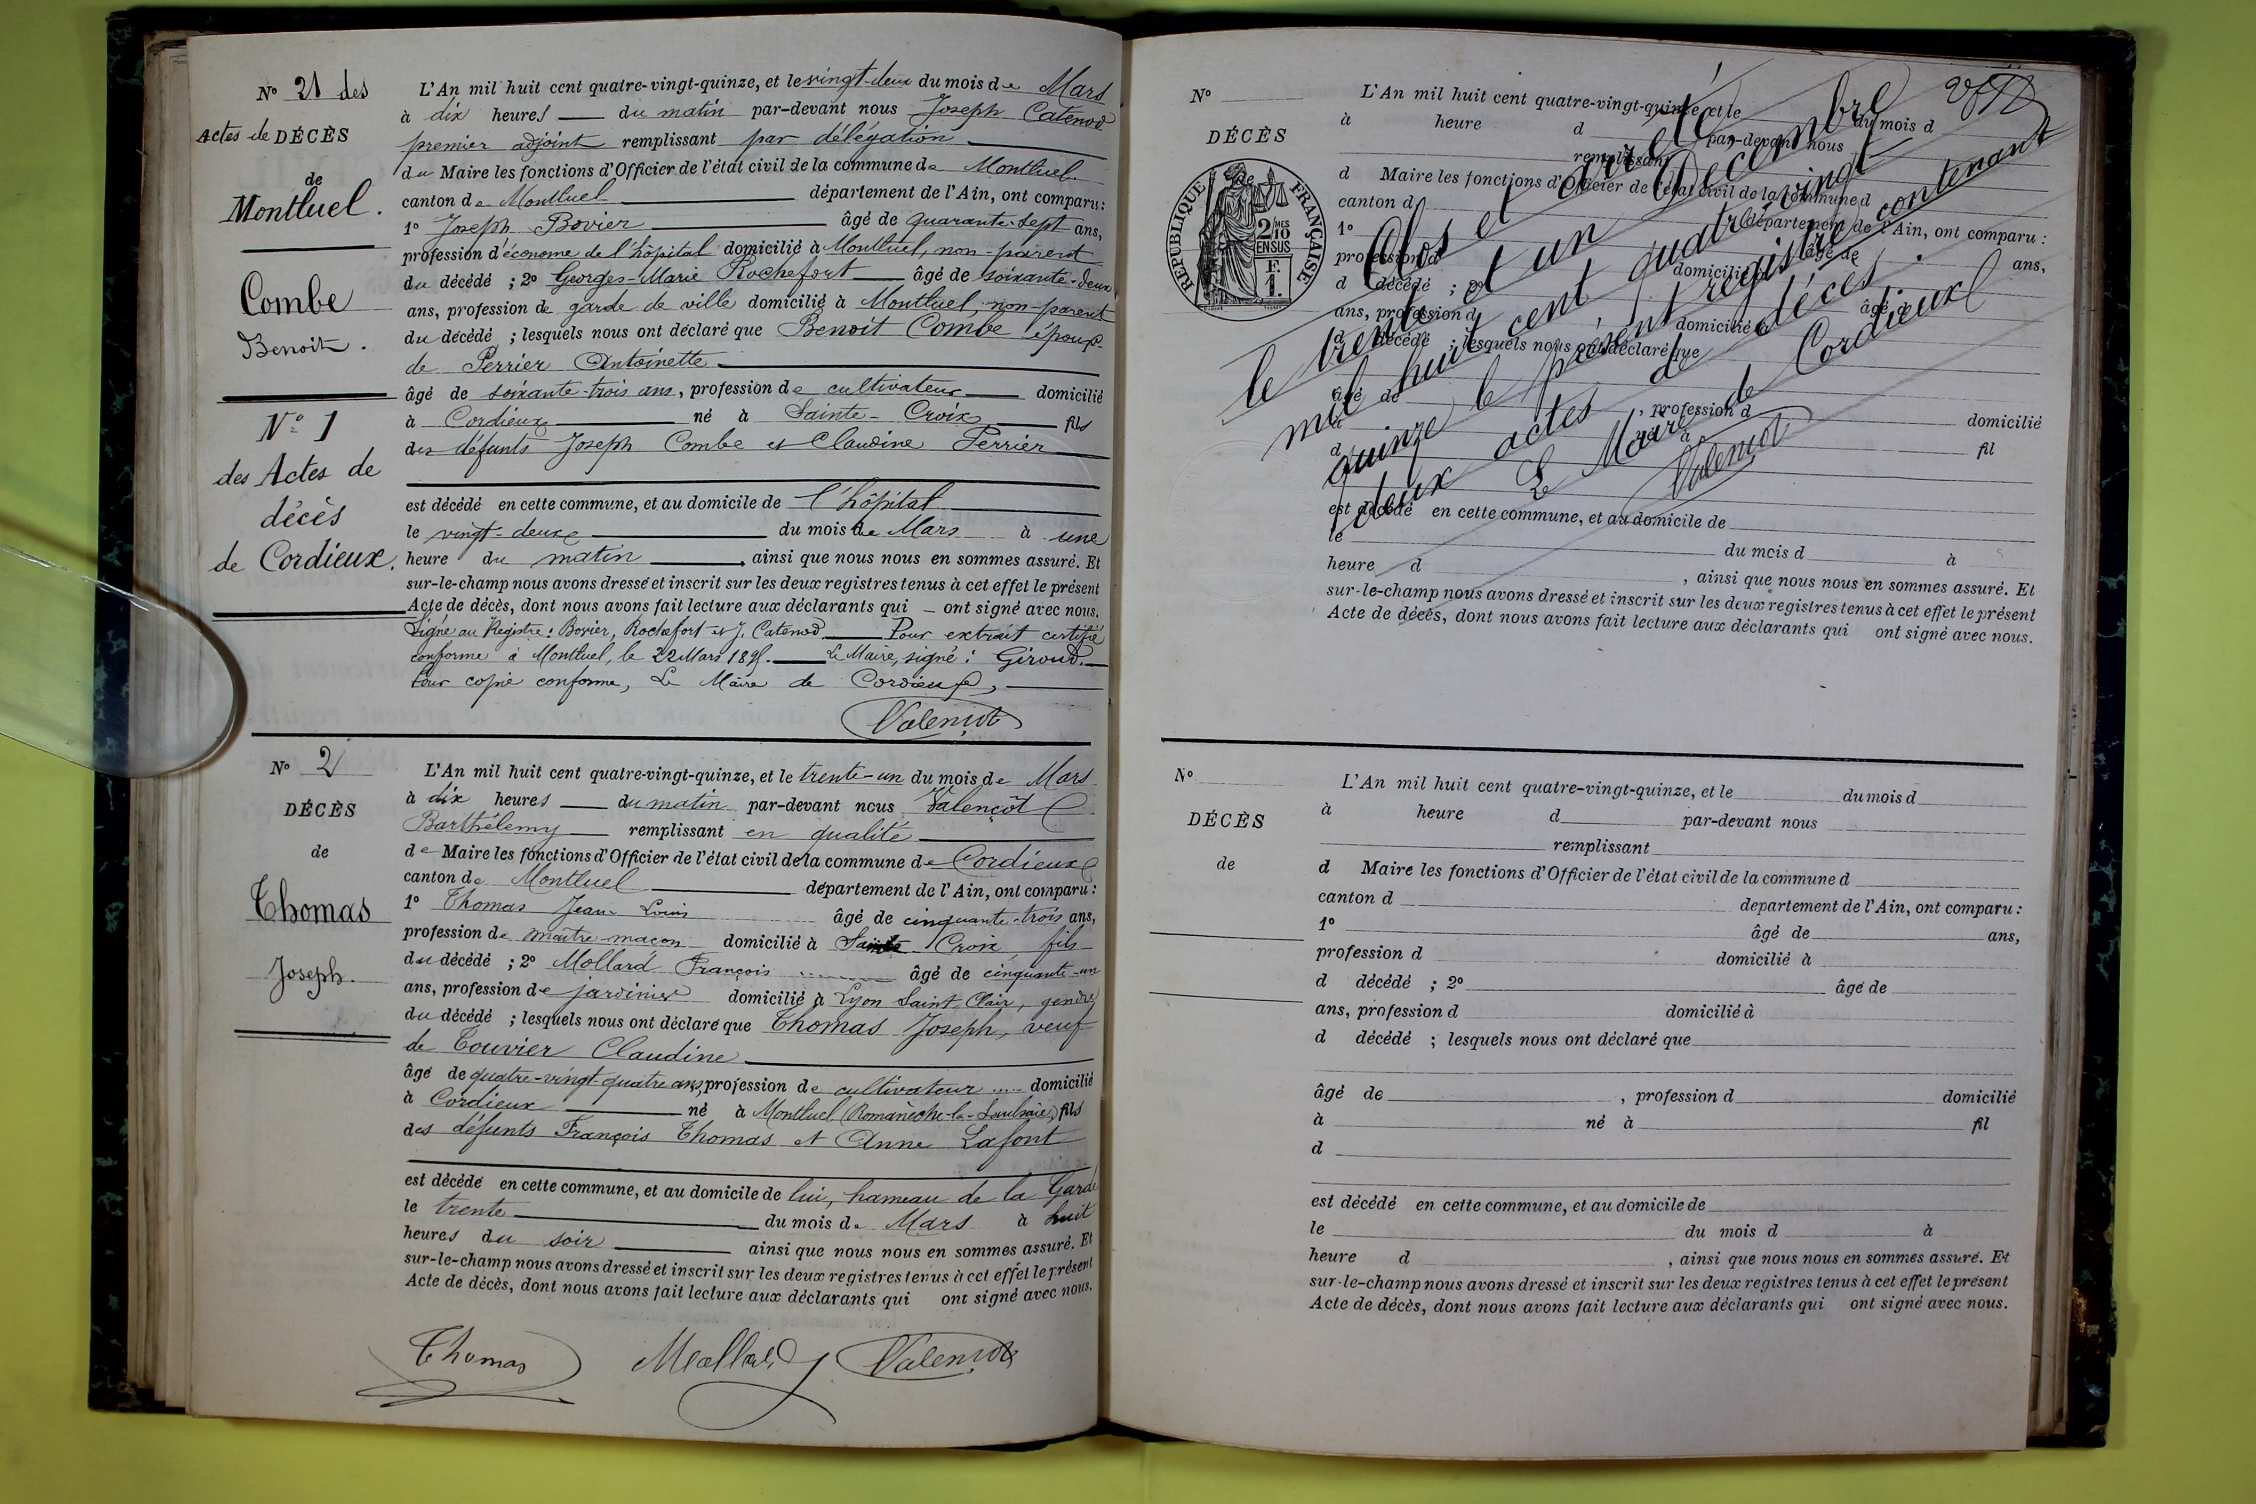 N° 21 des
Actes de DÉCÈS
de
Montluel.
Combe
Benoit.
N° 1
des Actes de
décès
de Cordieux.
L'An mil huit cent quatre-vingt-quinze, et le vingt-deux du mois de Mars
à dix heures du matin par-devant nous Joseph Catenod
premier adjoint remplissant par délégation
du Maire les fonctions d'Officier de l'état civil de la commune de Montluel
canton de Montluel département de l'Ain, ont comparu :
1° Joseph Bovier âgé de quarante-sept ans,
profession d'économe de l'hôpital domicilié à Montluel, non-parent
du décédé ; 2° Georges-Marie Rochefort âgé de soixante-deux
ans, profession de garde de ville domicilié à Montluel, non-parent
du décédé ; lesquels nous ont déclaré que Benoit Combe époux
de Perrier Antoinette
âgé de soixante-trois ans, profession de cultivateur domicilié
à Cordieux né à Sainte-Croix fils
des défunts Joseph Combe et Claudine Perrier
est décédé en cette commune, et au domicile de l'hôpital
le vingt-deux du mois de Mars à une
heure du matin, ainsi que nous nous en sommes assuré. Et
sur-le-champ nous avons dressé et inscrit sur les deux registres tenus à cet effet le présent
Acte de décès, dont nous avons fait lecture aux déclarants qui – ont signé avec nous.
Signé au Registre : Bovier, Rochefort et J. Catenod Pour extrait certifié
conforme à Montluel, le 22 Mars 1895. Le Maire, signé : Giroud.
Pour copie conforme, Le Maire de Cordieux,
Valençot
N° 2
DÉCÈS
de
Thomas
Joseph.
L'An mil huit cent quatre-vingt-quinze, et le trente-un du mois de Mars
à dix heures du matin par-devant nous Valençot
Barthélemy remplissant en qualité
de Maire les fonctions d'Officier de l'état civil de la commune de Cordieux
canton de Montluel département de l'Ain, ont comparu :
1° Thomas Jean Louis âgé de cinquante-trois ans,
profession de maître-maçon domicilié à Sainte Croix, fils
du décédé ; 2° Mollard François âgé de cinquante-un
ans, profession de jardinier domicilié à Lyon Saint-Clair, gendre
du décédé ; lesquels nous ont déclaré que Thomas Joseph, veuf
de Touvier Claudine
âgé de quatre-vingt-quatre ans, profession de cultivateur domicilié
à Cordieux né à Montluel (Romanèche-la-Saulsaie) fils
des défunts François Thomas et Anne Lafont
est décédé en cette commune, et au domicile de lui, hameau de la Garde
le trente du mois de Mars à huit
heures du soir ainsi que nous nous en sommes assuré. Et
sur-le-champ nous avons dressé et inscrit sur les deux registres tenus à cet effet le présent
Acte de décès, dont nous avons fait lecture aux déclarants qui ont signé avec nous.
Thomas Mollard Valençot
N°
DÉCÈS
de
RÉPUBLIQUE FRANÇAISE
2/10MES
EN SUS
F.
1.
L'An mil huit cent quatre-vingt-quinze, et le du mois d
à heure d par-devant nous
remplissant
d Maire les fonctions d'Officier de l'état civil de la commune d
canton d département de l'Ain, ont comparu :
1° âgé de ans,
profession d domicilié à
d décédé ; 2° âgé de
ans, profession d domicilié à
d décédé ; lesquels nous ont déclaré que
âgé de , profession d domicilié
à né à fil
d
est décédé en cette commune, et au domicile de
le du mois d à
heure d , ainsi que nous nous en sommes assuré. Et
sur-le-champ nous avons dressé et inscrit sur les deux registres tenus à cet effet le présent
Acte de décès, dont nous avons fait lecture aux déclarants qui ont signé avec nous.
Clos et arrêté
le trente et un Décembre
mil huit cent quatre vingt-
quinze le présent registre contenant
deux actes de décès.
Le Maire de Cordieux
Valençot
N°
DÉCÈS
de
L'An mil huit cent quatre-vingt-quinze, et le du mois d
à heure d par-devant nous
remplissant
d Maire les fonctions d'Officier de l'état civil de la commune d
canton d département de l'Ain, ont comparu :
1° âgé de ans,
profession d domicilié à
d décédé ; 2° âgé de
ans, profession d domicilié à
d décédé ; lesquels nous ont déclaré que
âgé de , profession d domicilié
à né à fil
d
est décédé en cette commune, et au domicile de
le du mois d à
heure d , ainsi que nous nous en sommes assuré. Et
sur-le-champ nous avons dressé et inscrit sur les deux registres tenus à cet effet le présent
Acte de décès, dont nous avons fait lecture aux déclarants qui ont signé avec nous.